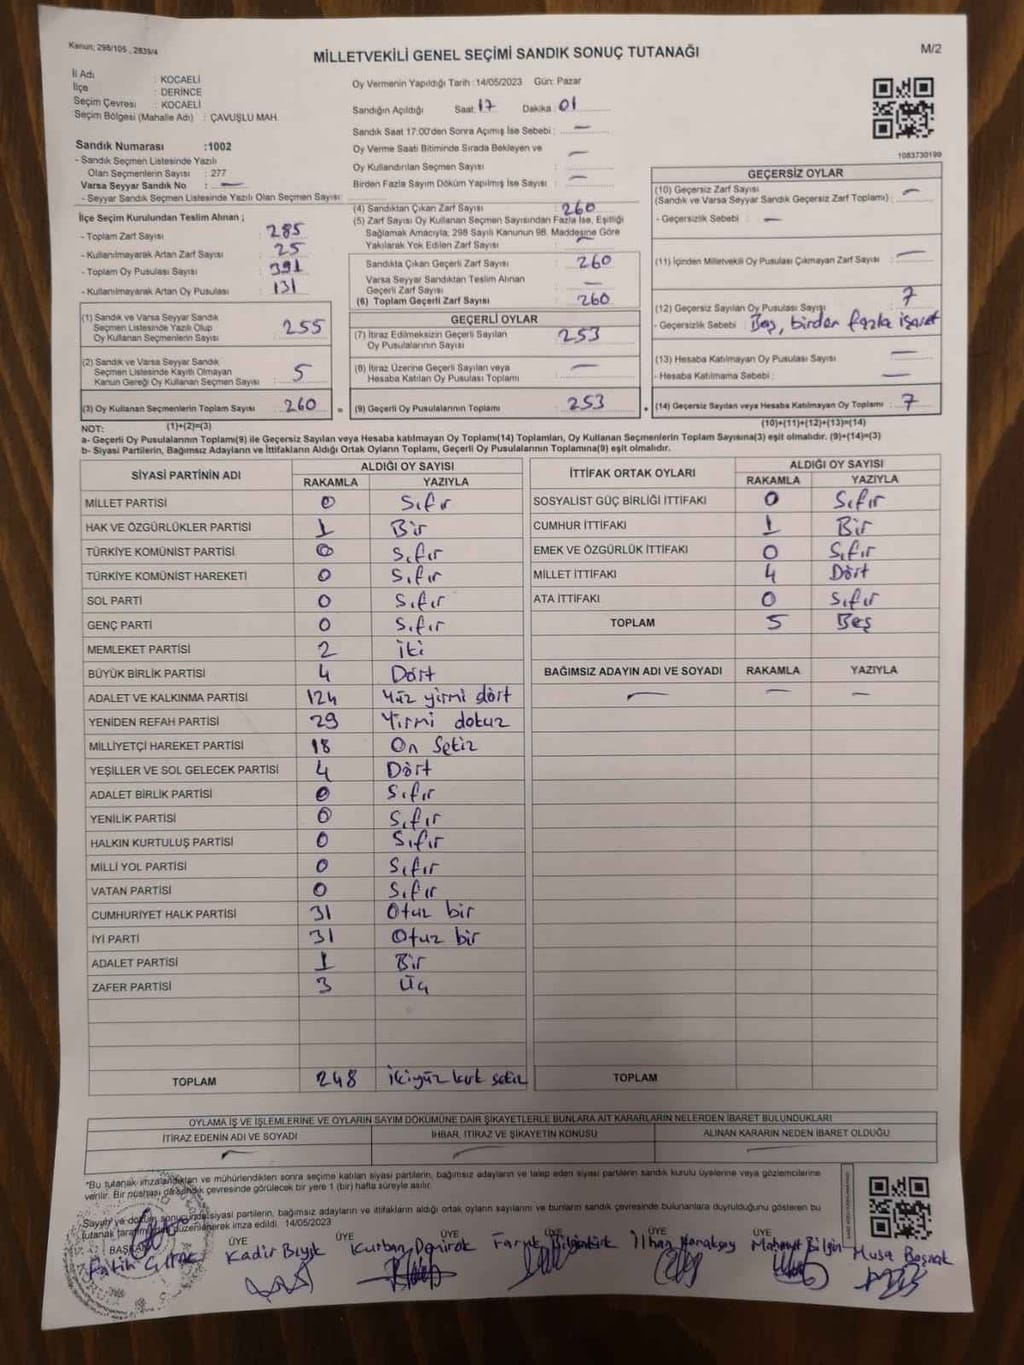 Kanun; 298/105 , 2839/4
MİLLETVEKİLİ GENEL SEÇİMİ SANDIK SONUÇ TUTANAĞI
M/2
İl Adı : KOCAELİ
İlçe : DERİNCE
Seçim Çevresi : KOCAELİ
Seçim Bölgesi (Mahalle Adı) : ÇAVUŞLU MAH.
Oy Vermenin Yapıldığı Tarih : 14/05/2023 Gün: Pazar
Sandığın Açıldığı Saat: 17 Dakika : 01
Sandık Saat 17:00'den Sonra Açılmış İse Sebebi : —
Oy Verme Saati Bitiminde Sırada Bekleyen ve
Oy Kullandırılan Seçmen Sayısı : —
Birden Fazla Sayım Döküm Yapılmış İse Sayısı : —
1083730199
Sandık Numarası :1002
- Sandık Seçmen Listesinde Yazılı
Olan Seçmenlerin Sayısı : 277
Varsa Seyyar Sandık No : —
- Seyyar Sandık Seçmen Listesinde Yazılı Olan Seçmen Sayısı:
İlçe Seçim Kurulundan Teslim Alınan ;
- Toplam Zarf Sayısı : 285
- Kullanılmayarak Artan Zarf Sayısı : 25
- Toplam Oy Pusulası Sayısı : 391
- Kullanılmayarak Artan Oy Pusulası : 131
(1) Sandık ve Varsa Seyyar Sandık
Seçmen Listesinde Yazılı Olup
Oy Kullanan Seçmenlerin Sayısı : 255
(2) Sandık ve Varsa Seyyar Sandık
Seçmen Listesinde Kayıtlı Olmayan
Kanun Gereği Oy Kullanan Seçmen Sayısı : 5
(3) Oy Kullanan Seçmenlerin Toplam Sayısı : 260
(4) Sandıktan Çıkan Zarf Sayısı : 260
(5) Zarf Sayısı Oy Kullanan Seçmen Sayısından Fazla İse, Eşitliği
Sağlamak Amacıyla; 298 Sayılı Kanunun 98. Maddesine Göre
Yakılarak Yok Edilen Zarf Sayısı : —
Sandıkta Çıkan Geçerli Zarf Sayısı : 260
Varsa Seyyar Sandıktan Teslim Alınan
Geçerli Zarf Sayısı : —
(6) Toplam Geçerli Zarf Sayısı : 260
GEÇERLİ OYLAR
(7) İtiraz Edilmeksizin Geçerli Sayılan
Oy Pusulalarının Sayısı : 253
(8) İtiraz Üzerine Geçerli Sayılan veya
Hesaba Katılan Oy Pusulası Toplamı : —
= (9) Geçerli Oy Pusulalarının Toplamı : 253
GEÇERSİZ OYLAR
(10) Geçersiz Zarf Sayısı
(Sandık ve Varsa Seyyar Sandık Geçersiz Zarf Toplamı) : —
- Geçersizlik Sebebi : —
(11) İçinden Milletvekili Oy Pusulası Çıkmayan Zarf Sayısı : —
(12) Geçersiz Sayılan Oy Pusulası Sayısı : 7
- Geçersizlik Sebebi : Boş, birden fazla işaret
(13) Hesaba Katılmayan Oy Pusulası Sayısı : —
- Hesaba Katılmama Sebebi : —
+ (14) Geçersiz Sayılan veya Hesaba Katılmayan Oy Toplamı : 7
NOT: (1)+(2)=(3)
(10)+(11)+(12)+(13)=(14)
a- Geçerli Oy Pusulalarının Toplamı(9) ile Geçersiz Sayılan veya Hesaba katılmayan Oy Toplamı(14) Toplamları, Oy Kullanan Seçmenlerin Toplam Sayısına(3) eşit olmalıdır. (9)+(14)=(3)
b- Siyasi Partilerin, Bağımsız Adayların ve İttifakların Aldığı Ortak Oyların Toplamı, Geçerli Oy Pusulalarının Toplamına(9) eşit olmalıdır.
SİYASİ PARTİNİN ADI ALDIĞI OY SAYISI
RAKAMLA YAZIYLA
MİLLET PARTİSİ 0 Sıfır
HAK VE ÖZGÜRLÜKLER PARTİSİ 1 Bir
TÜRKİYE KOMÜNİST PARTİSİ 0 Sıfır
TÜRKİYE KOMÜNİST HAREKETİ 0 Sıfır
SOL PARTİ 0 Sıfır
GENÇ PARTİ 0 Sıfır
MEMLEKET PARTİSİ 2 İki
BÜYÜK BİRLİK PARTİSİ 4 Dört
ADALET VE KALKINMA PARTİSİ 124 Yüz yirmi dört
YENİDEN REFAH PARTİSİ 29 Yirmi dokuz
MİLLİYETÇİ HAREKET PARTİSİ 18 On Sekiz
YEŞİLLER VE SOL GELECEK PARTİSİ 4 Dört
ADALET BİRLİK PARTİSİ 0 Sıfır
YENİLİK PARTİSİ 0 Sıfır
HALKIN KURTULUŞ PARTİSİ 0 Sıfır
MİLLİ YOL PARTİSİ 0 Sıfır
VATAN PARTİSİ 0 Sıfır
CUMHURİYET HALK PARTİSİ 31 Otuz bir
İYİ PARTİ 31 Otuz bir
ADALET PARTİSİ 1 Bir
ZAFER PARTİSİ 3 Üç
TOPLAM 248 İkiyüz kırk sekiz
İTTİFAK ORTAK OYLARI ALDIĞI OY SAYISI
RAKAMLA YAZIYLA
SOSYALİST GÜÇ BİRLİĞİ İTTİFAKI 0 Sıfır
CUMHUR İTTİFAKI 1 Bir
EMEK VE ÖZGÜRLÜK İTTİFAKI 0 Sıfır
MİLLET İTTİFAKI 4 Dört
ATA İTTİFAKI 0 Sıfır
TOPLAM 5 Beş
BAĞIMSIZ ADAYIN ADI VE SOYADI RAKAMLA YAZIYLA
— — —
TOPLAM
OYLAMA İŞ VE İŞLEMLERİNE VE OYLARIN SAYIM DÖKÜMÜNE DAİR ŞİKAYETLERLE BUNLARA AİT KARARLARIN NELERDEN İBARET BULUNDUKLARI
İTİRAZ EDENİN ADI VE SOYADI İHBAR, İTİRAZ VE ŞİKAYETİN KONUSU ALINAN KARARIN NEDEN İBARET OLDUĞU
— — —
"Bu tutanak imzalandıktan ve mühürlendikten sonra seçime katılan siyasi partilerin, bağımsız adayların ve talep eden siyasi partilerin sandık kurulu üyelerine veya gözlemcilerine
verilir. Bir nüshası da sandık çevresinde görülecek bir yere 1 (bir) hafta süreyle asılır.
Sayım ve döküm sonucunda siyasi partilerin, bağımsız adayların ve ittifakların aldığı ortak oyların sayılarını ve bunların sandık çevresinde bulunanlara duyrulduğunu gösteren bu
tutanak tarafımızdan düzenlenerek imza edildi. 14/05/2023
BAŞKAN ÜYE ÜYE ÜYE ÜYE ÜYE ÜYE
Fatih Kadir Bıyık Kurban Demirok Faruk İlhan Mahmut Bilgin Musa Boşnak